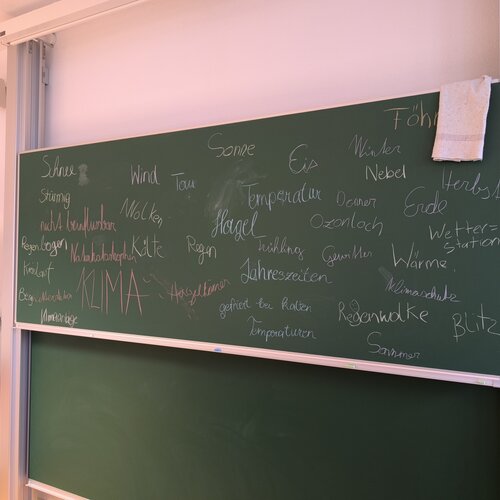 Föhn
Sonne
Winter
Schnee
Eis
Wind
Tau
Nebel
Herbst
Stürmig
Temperatur
Donner
Erde
Wolken
nicht beeinflussbar
Hagel
Ozonloch
Wetter=
station
Regenbogen
Kälte
Regen
Frühling
Gewitter
Naturkatastrophen
Wärme
Jahreszeiten
KLIMA
Klimaschutz
gefriert bei kalten
Temperaturen
Regenwolke
Blitz
Sommer